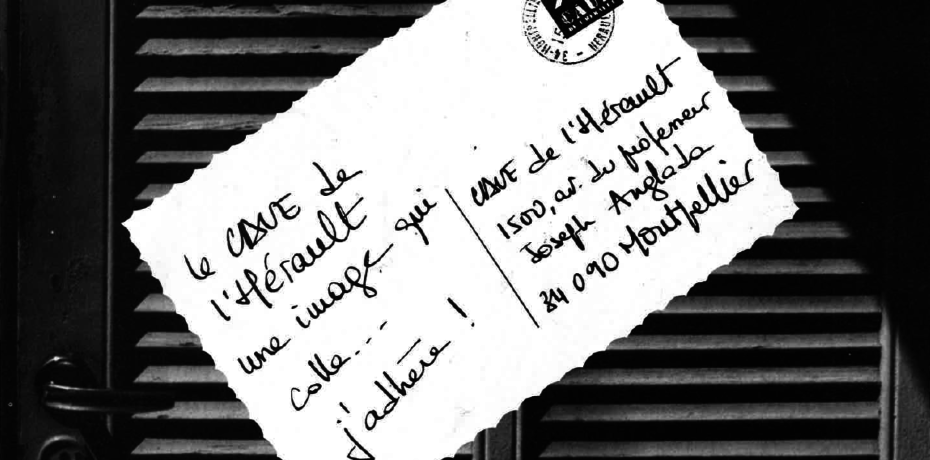 le CAUE de
l'Hérault
une image qui
colle...
j'adhère !
CAUE de l'Hérault
1500, av. du professeur
Joseph Anglada
34 090 Montpellier
34 - HERAULT